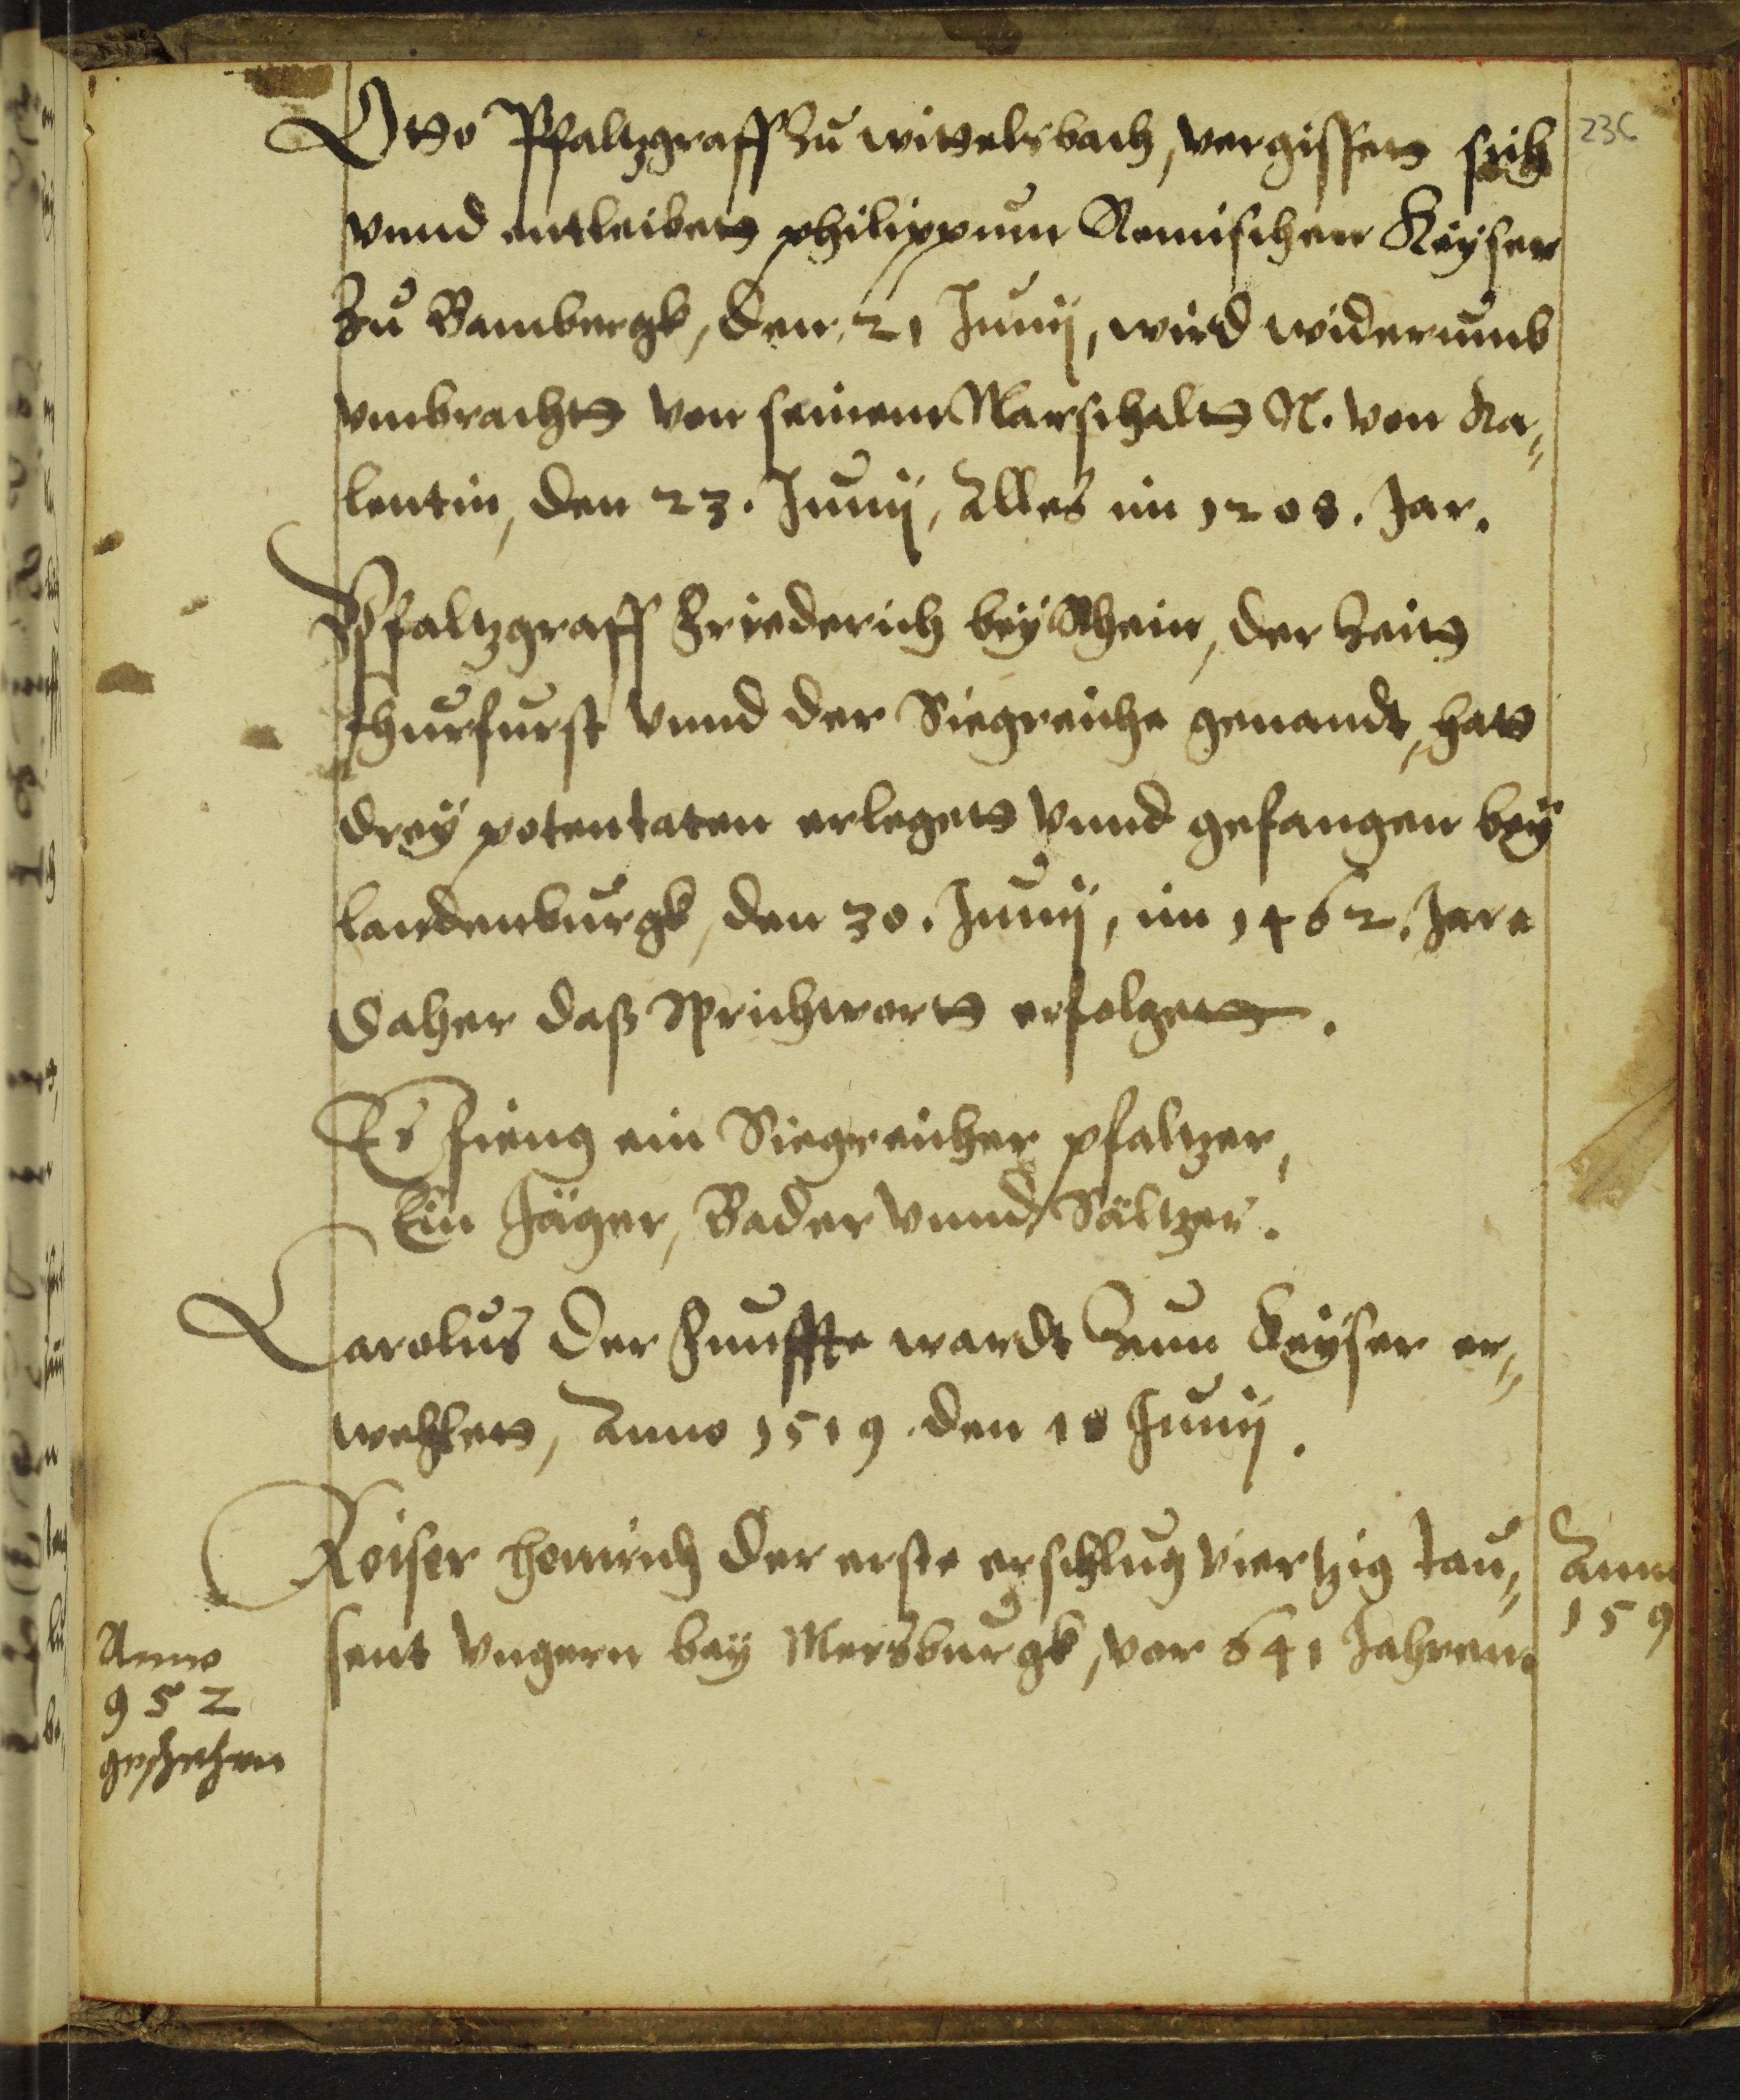 236
Otto Pfaltzgraff zu wittelsbach, vergisset sich
vnnd entleibett philippum Romischen Keyser
Zu Bambergk, den 21 Junij, wird widerumb
vmbracht von seinem Marschalt N. von Ka⸗
lentin, den 23. Junij, Alles im 1208. Jar.
Pfaltzgraff Friederich bey Rhein, der Zeitt
Churfurst vnnd der Siegreiche genandt, hatt
drey potentaten erlegett vnnd gefangen bey
Landenburgk, den 30. Junij, im 1462. Jare
Daher daß Sprichwortt erfolgett.
Es fieng ein Siegreicher pfaltzer,
Ein Jäger, Bader vnnd Sältzer.
Carolus der Funffte wardt Zum Keyser er⸗
wehlett, Anno 1519. den 18 Junij.
Keiser Heinrich der erste erschlug viertzig tau⸗
sent Vngern bey Mersburgk, vor 641 Jahren.
Anno
159
Anno
952
geschehen